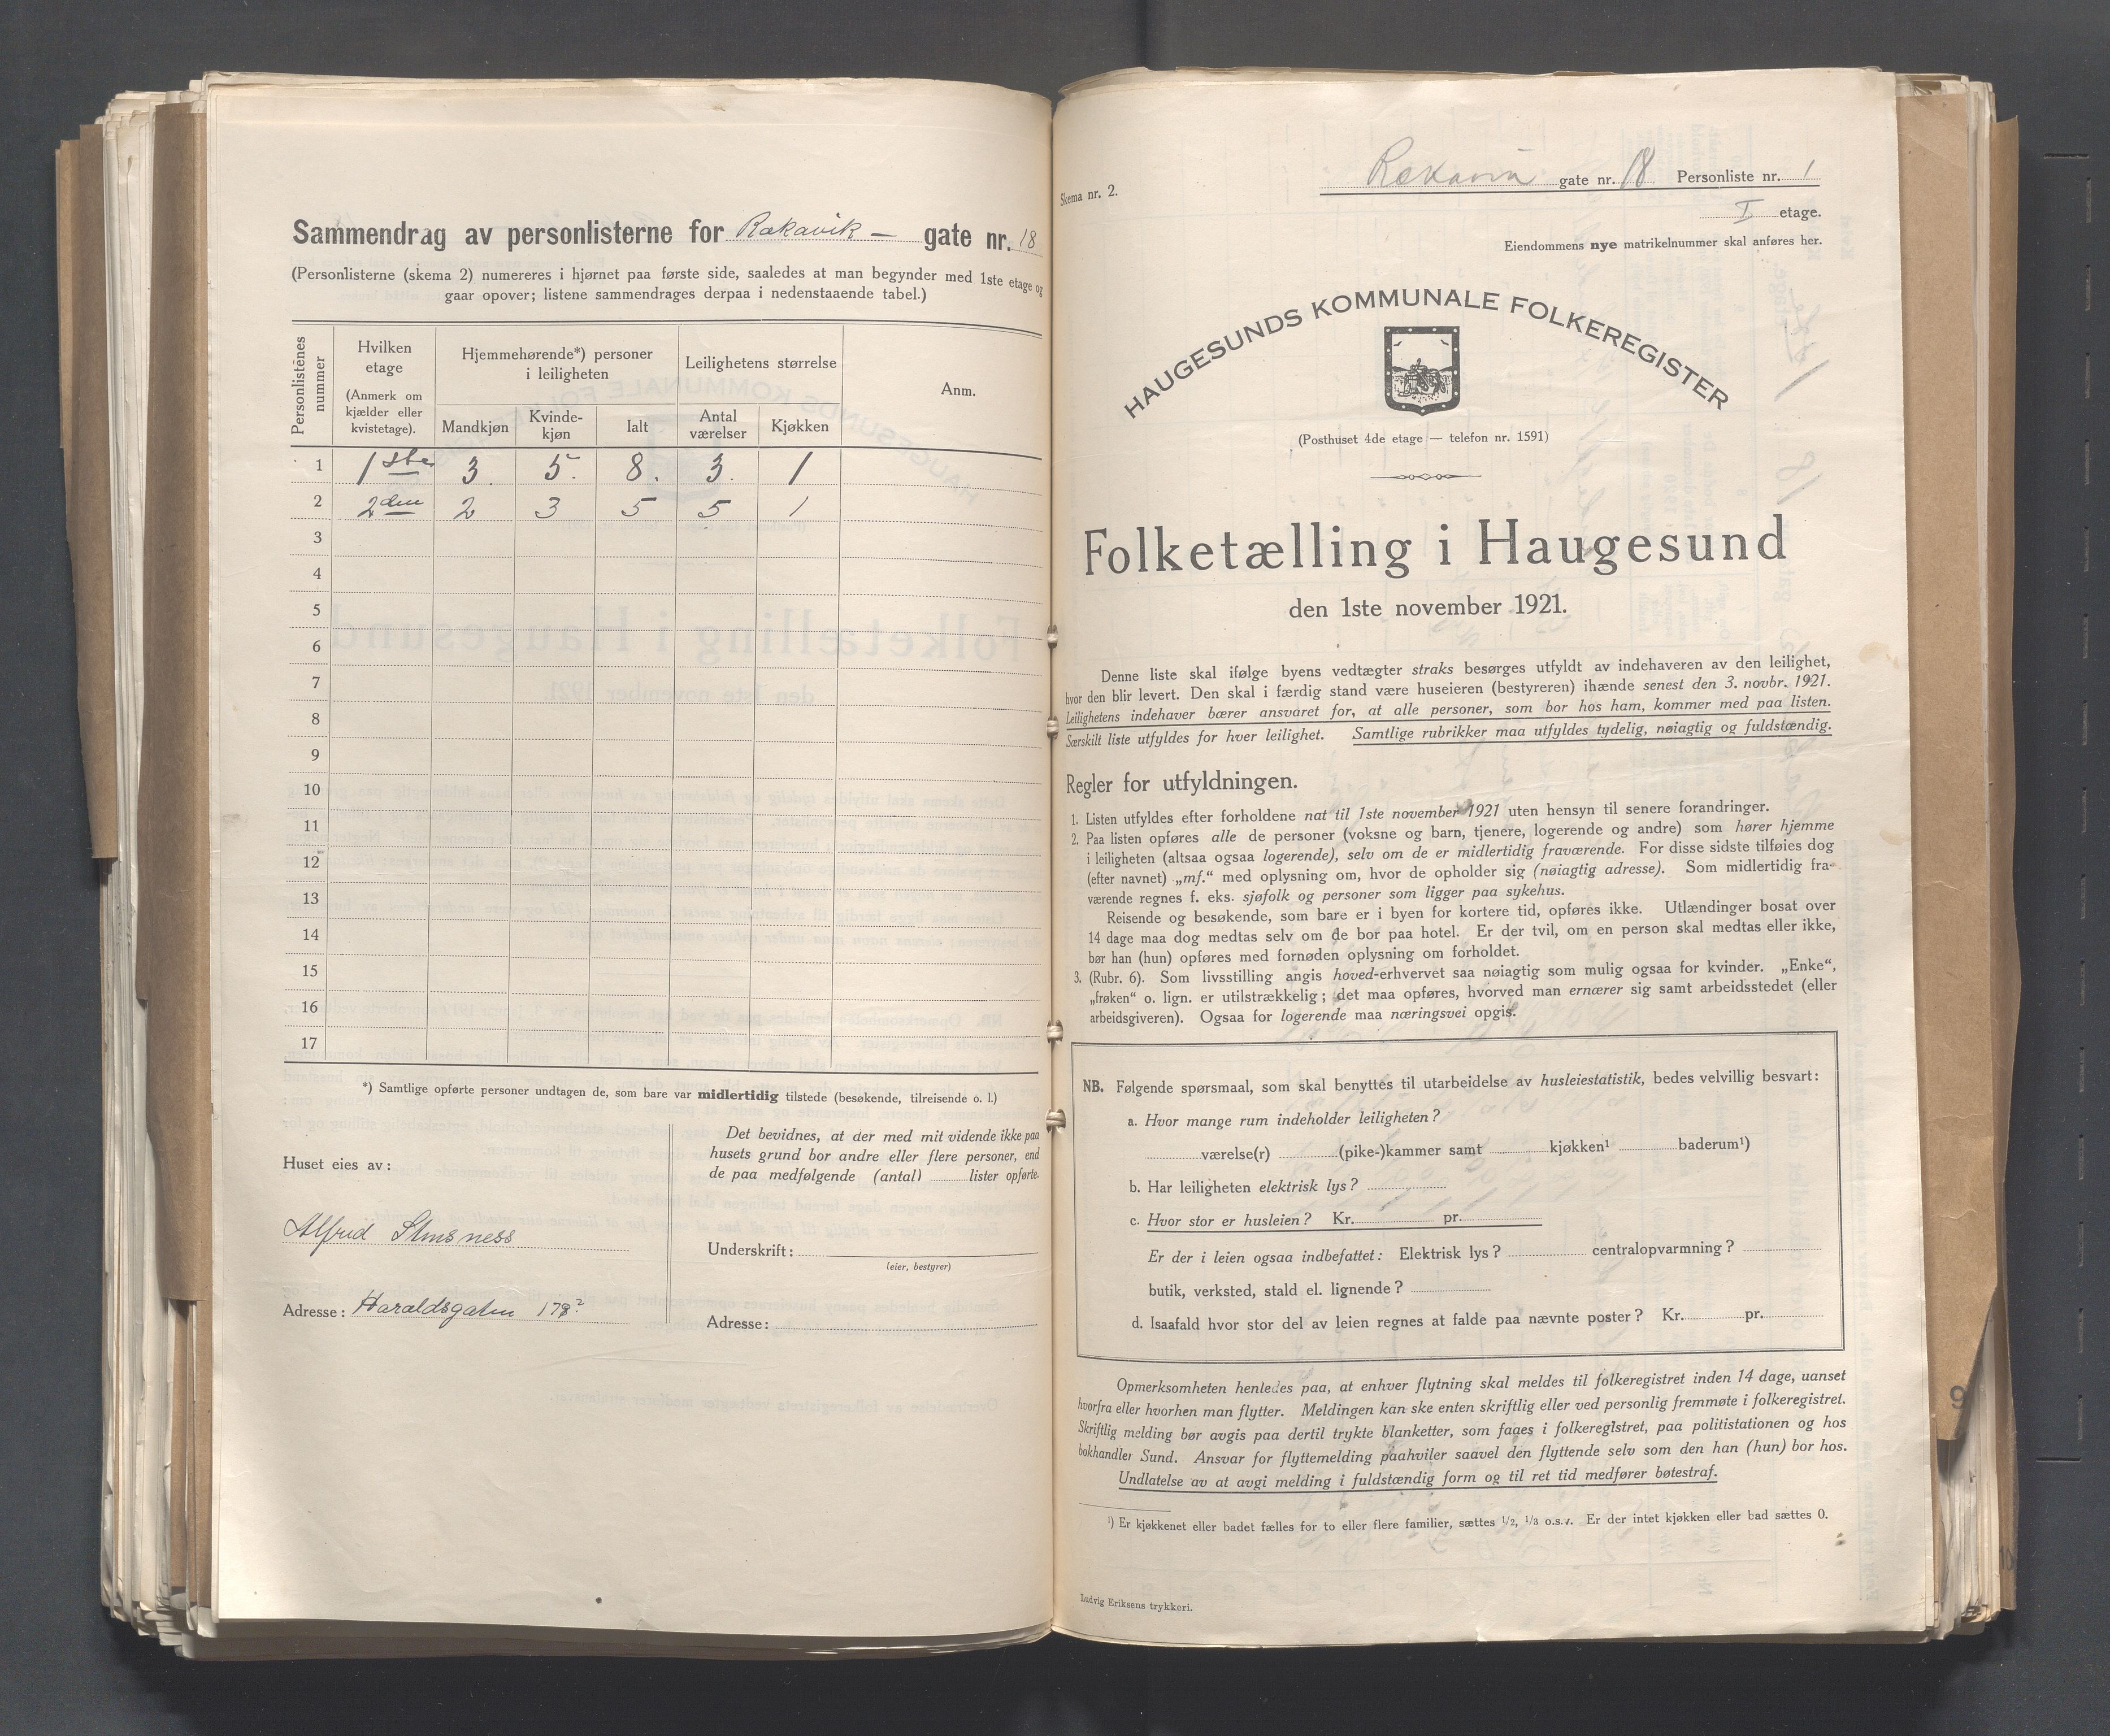 Sammendrag av personlisterne for Rækavik – gate nr. 18
(Personlisterne (skema 2) numereres i hjørnet paa første side, saaledes at man begynder med 1ste etage og
gaar opover; listene sammendrages derpaa i nedenstaaende tabel.)
Personlistenes nummer
Hvilken etage
(Anmerk om kjælder eller kvistetage).
Hjemmehørende*) personer i leiligheten
Leilighetens størrelse
Anm.
Mandkjøn
Kvinde-kjøn
Ialt
Antal værelser
Kjøkken
1 1ste 3. 5. 8. 3. 1
2 2den 2 3 5 5 1
3
4
5
6
7
8
9
10
11
12
13
14
15
16
17
*) Samtlige opførte personer undtagen de, som bare var midlertidig tilstede (besøkende, tilreisende o. l.)
Huset eies av:
Alfred
Adresse: Haraldsgaten
Det bevidnes, at der med mit vidende ikke paa
husets grund bor andre eller flere personer, end
de paa medfølgende (antal) lister opførte.
Underskrift:
(eier, bestyrer)
Adresse:
Skema nr. 2.
gate nr. 18 Personliste nr. 1
I etage.
Eiendommens nye matrikelnummer skal anføres her.
HAUGESUNDS KOMMUNALE FOLKEREGISTER
(Posthuset 4de etage — telefon nr. 1591)
Folketælling i Haugesund
den 1ste november 1921.
Denne liste skal ifølge byens vedtægter straks besørges utfyldt av indehaveren av den leilighet,
hvor den blir levert. Den skal i færdig stand være huseieren (bestyreren) ihænde senest den 3. novbr. 1921.
Leilighetens indehaver bærer ansvaret for, at alle personer, som bor hos ham, kommer med paa listen.
Særskilt liste utfyldes for hver leilighet. Samtlige rubrikker maa utfyldes tydelig, nøiagtig og fuldstændig.
Regler for utfyldningen.
1. Listen utfyldes efter forholdene nat til 1ste november 1921 uten hensyn til senere forandringer.
2. Paa listen opføres alle de personer (voksne og barn, tjenere, logerende og andre) som hører hjemme
i leiligheten (altsaa ogsaa logerende), selv om de er midlertidig fraværende. For disse sidste tilføies dog
(efter navnet) „mf.“ med oplysning om, hvor de opholder sig (nøiagtig adresse). Som midlertidig fra-
værende regnes f. eks. sjøfolk og personer som ligger paa sykehus.
Reisende og besøkende, som bare er i byen for kortere tid, opføres ikke. Utlændinger bosat over
14 dage maa dog medtas selv om de bor paa hotel. Er der tvil, om en person skal medtas eller ikke,
bør han (hun) opføres med fornøden oplysning om forholdet.
3. (Rubr. 6). Som livsstilling angis hoved-erhvervet saa nøiagtig som mulig ogsaa for kvinder. „Enke“,
„frøken“ o. lign. er utilstrækkelig; det maa opføres, hvorved man ernærer sig samt arbeidsstedet (eller
arbeidsgiveren). Ogsaa for logerende maa næringsvei opgis.
NB. Følgende spørsmaal, som skal benyttes til utarbeidelse av husleiestatistik, bedes velvillig besvart:
a. Hvor mange rum indeholder leiligheten?
værelse(r) (pike-)kammer samt kjøkken¹ baderum¹)
b. Har leiligheten elektrisk lys?
c. Hvor stor er husleien? Kr. pr.
Er der i leien ogsaa indbefattet: Elektrisk lys? centralopvarmning?
butik, verksted, stald el. lignende?
d. Isaafald hvor stor del av leien regnes at falde paa nævnte poster? Kr. pr.
Opmerksomheten henledes paa, at enhver flytning skal meldes til folkeregistret inden 14 dage, uanset
hvorfra eller hvorhen man flytter. Meldingen kan ske enten skriftlig eller ved personlig fremmøte i folkeregistret.
Skriftlig melding bør avgis paa dertil trykte blanketter, som faaes i folkeregistret, paa politistationen og hos
bokhandler Sund. Ansvar for flyttemelding paahviler saavel den flyttende selv som den han (hun) bor hos.
Undlatelse av at avgi melding i fuldstændig form og til ret tid medfører bøtestraf.
¹) Er kjøkkenet eller badet fælles for to eller flere familier, sættes 1/2, 1/3 o.s.v. Er der intet kjøkken eller bad sættes 0.
Ludvig Eriksens trykkeri.